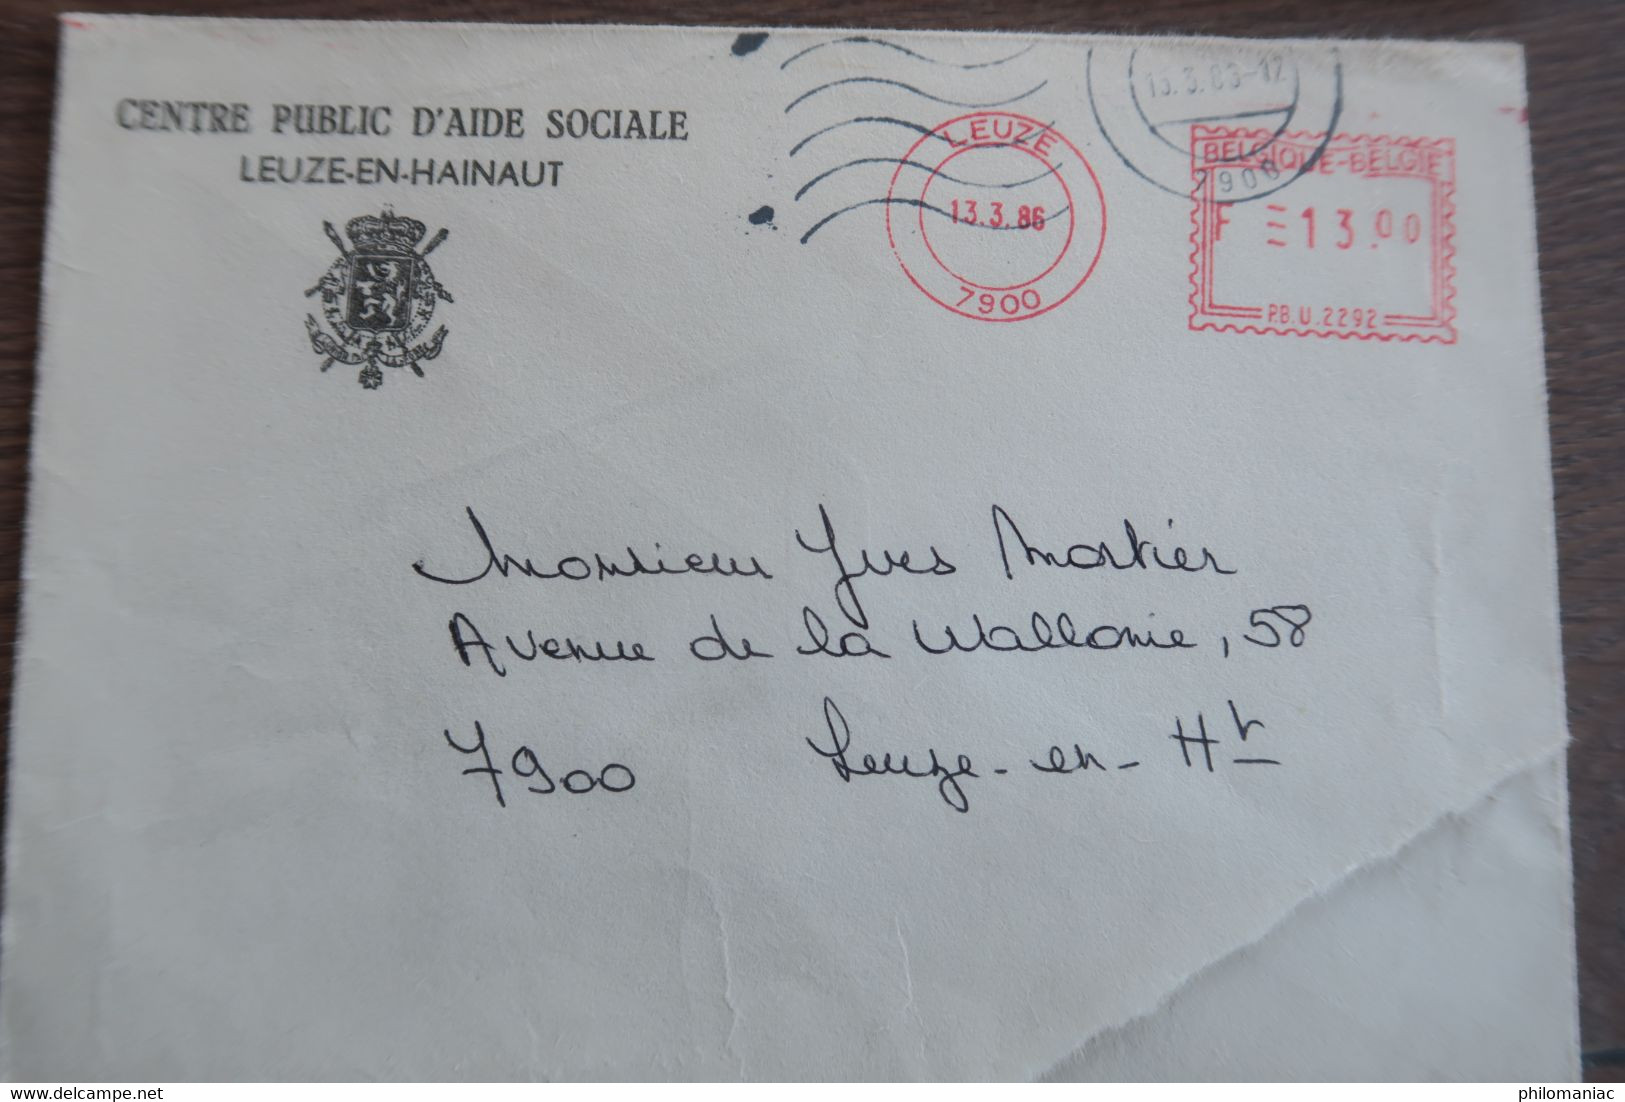 CENTRE PUBLIC D'AIDE SOCIALE
LEUZE-EN-HAINAUT
LEUZE
13.3.86
7900
13.3.86-12
7900
BELGIQUE-BELGIE
F 13.00
P.B.U.2292
Monsieur Yves Mortier
Avenue de la Wallonie, 58
7900 Leuze-en-Ht
delcampe.net
philomaniac